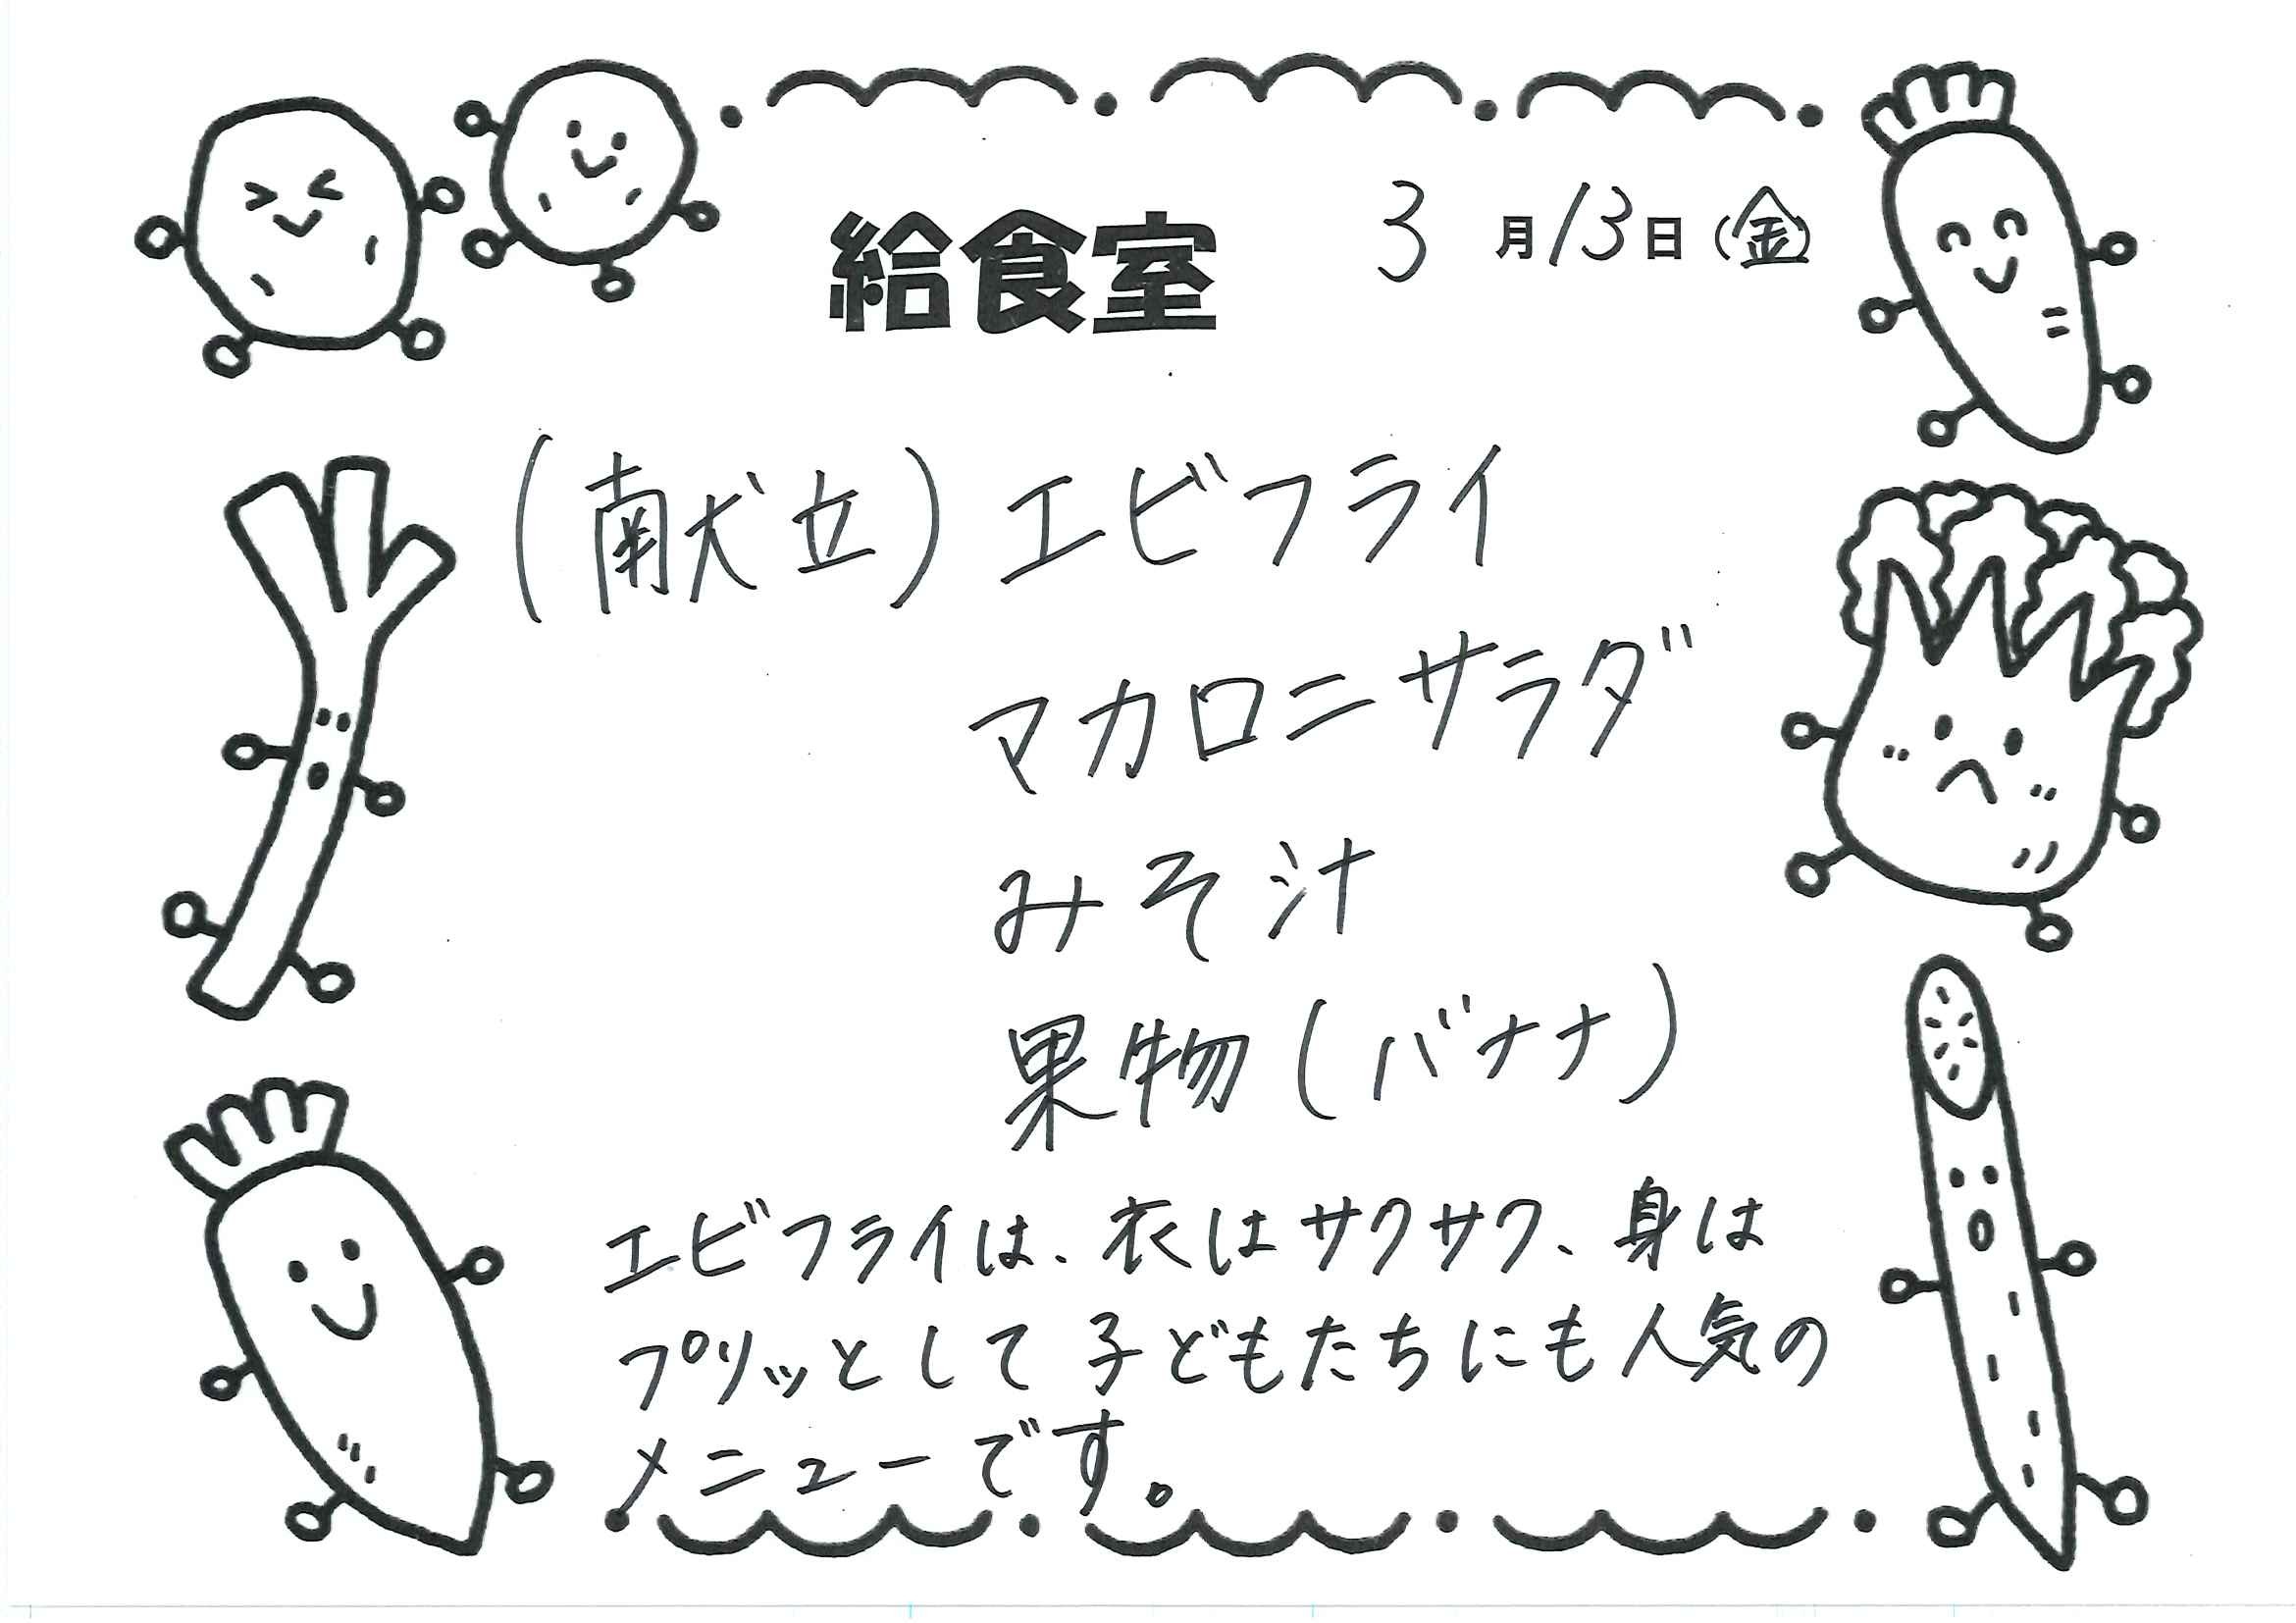 給食室 3月13日(金)
(献立)エビフライ
マカロニサラダ
みそ汁
果物(バナナ)
エビフライは、衣はサクサク、身は
プリッとして子どもたちにも人気の
メニューです。